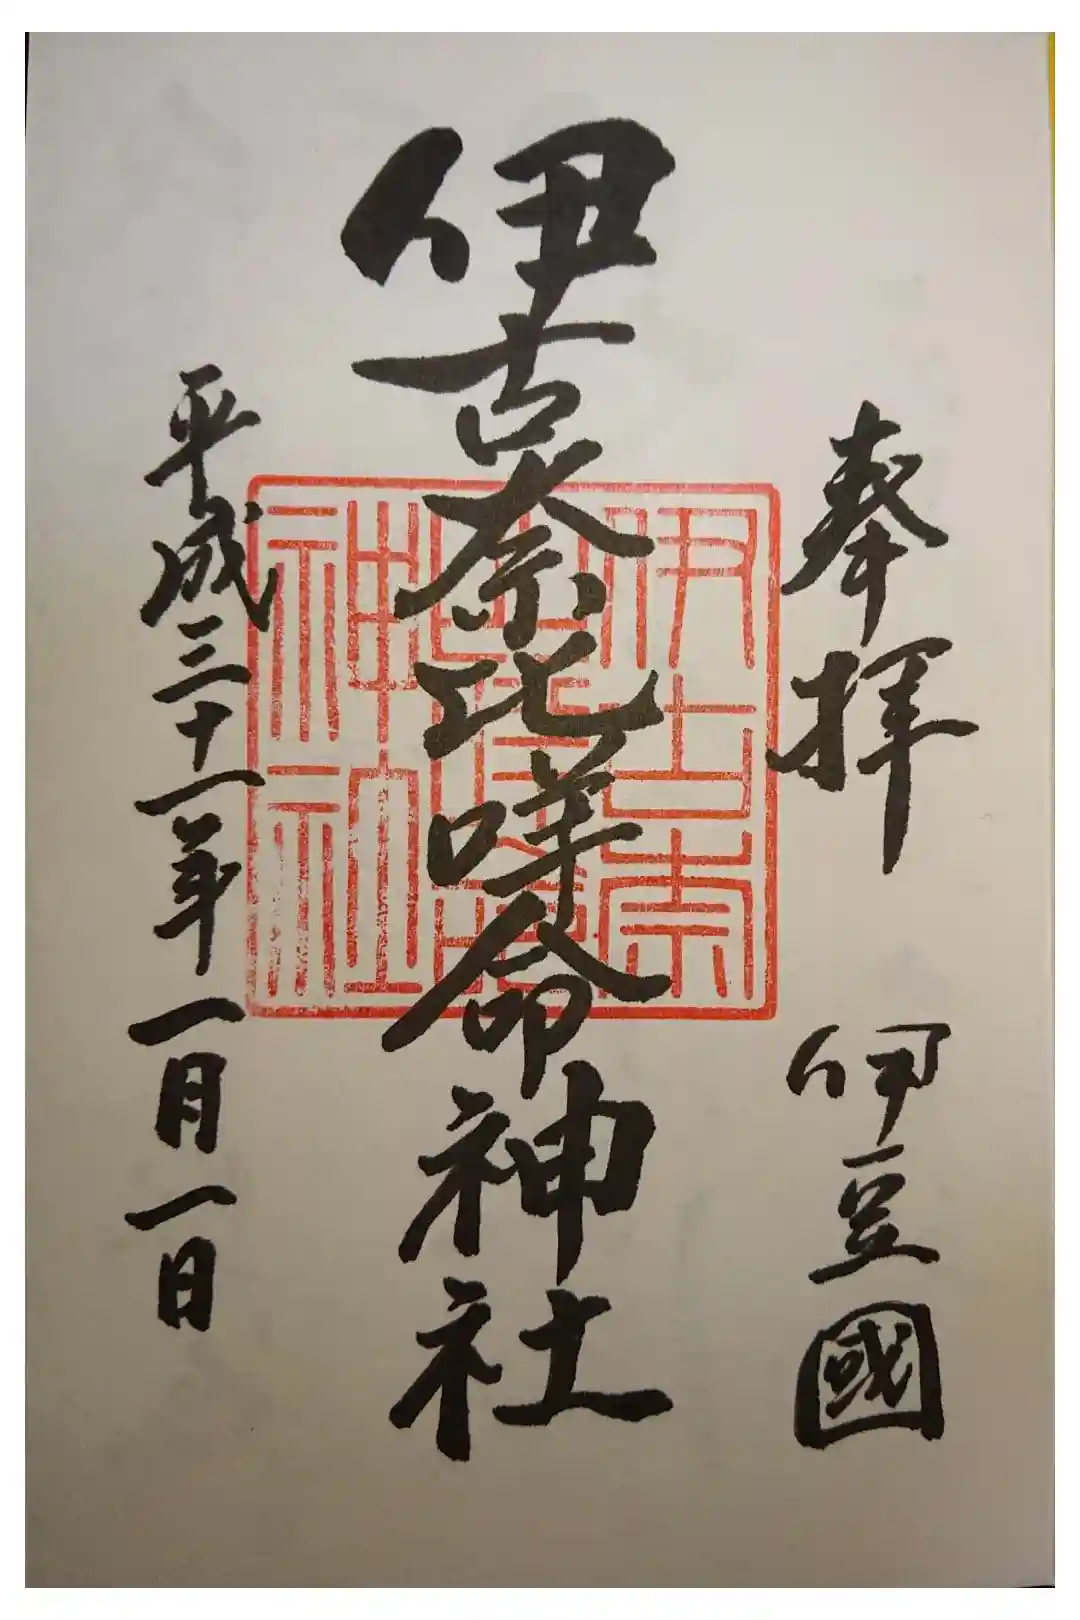 奉拝 伊豆國
伊古奈比咩命神社
伊古奈比咩命神社
平成三十一年一月一日